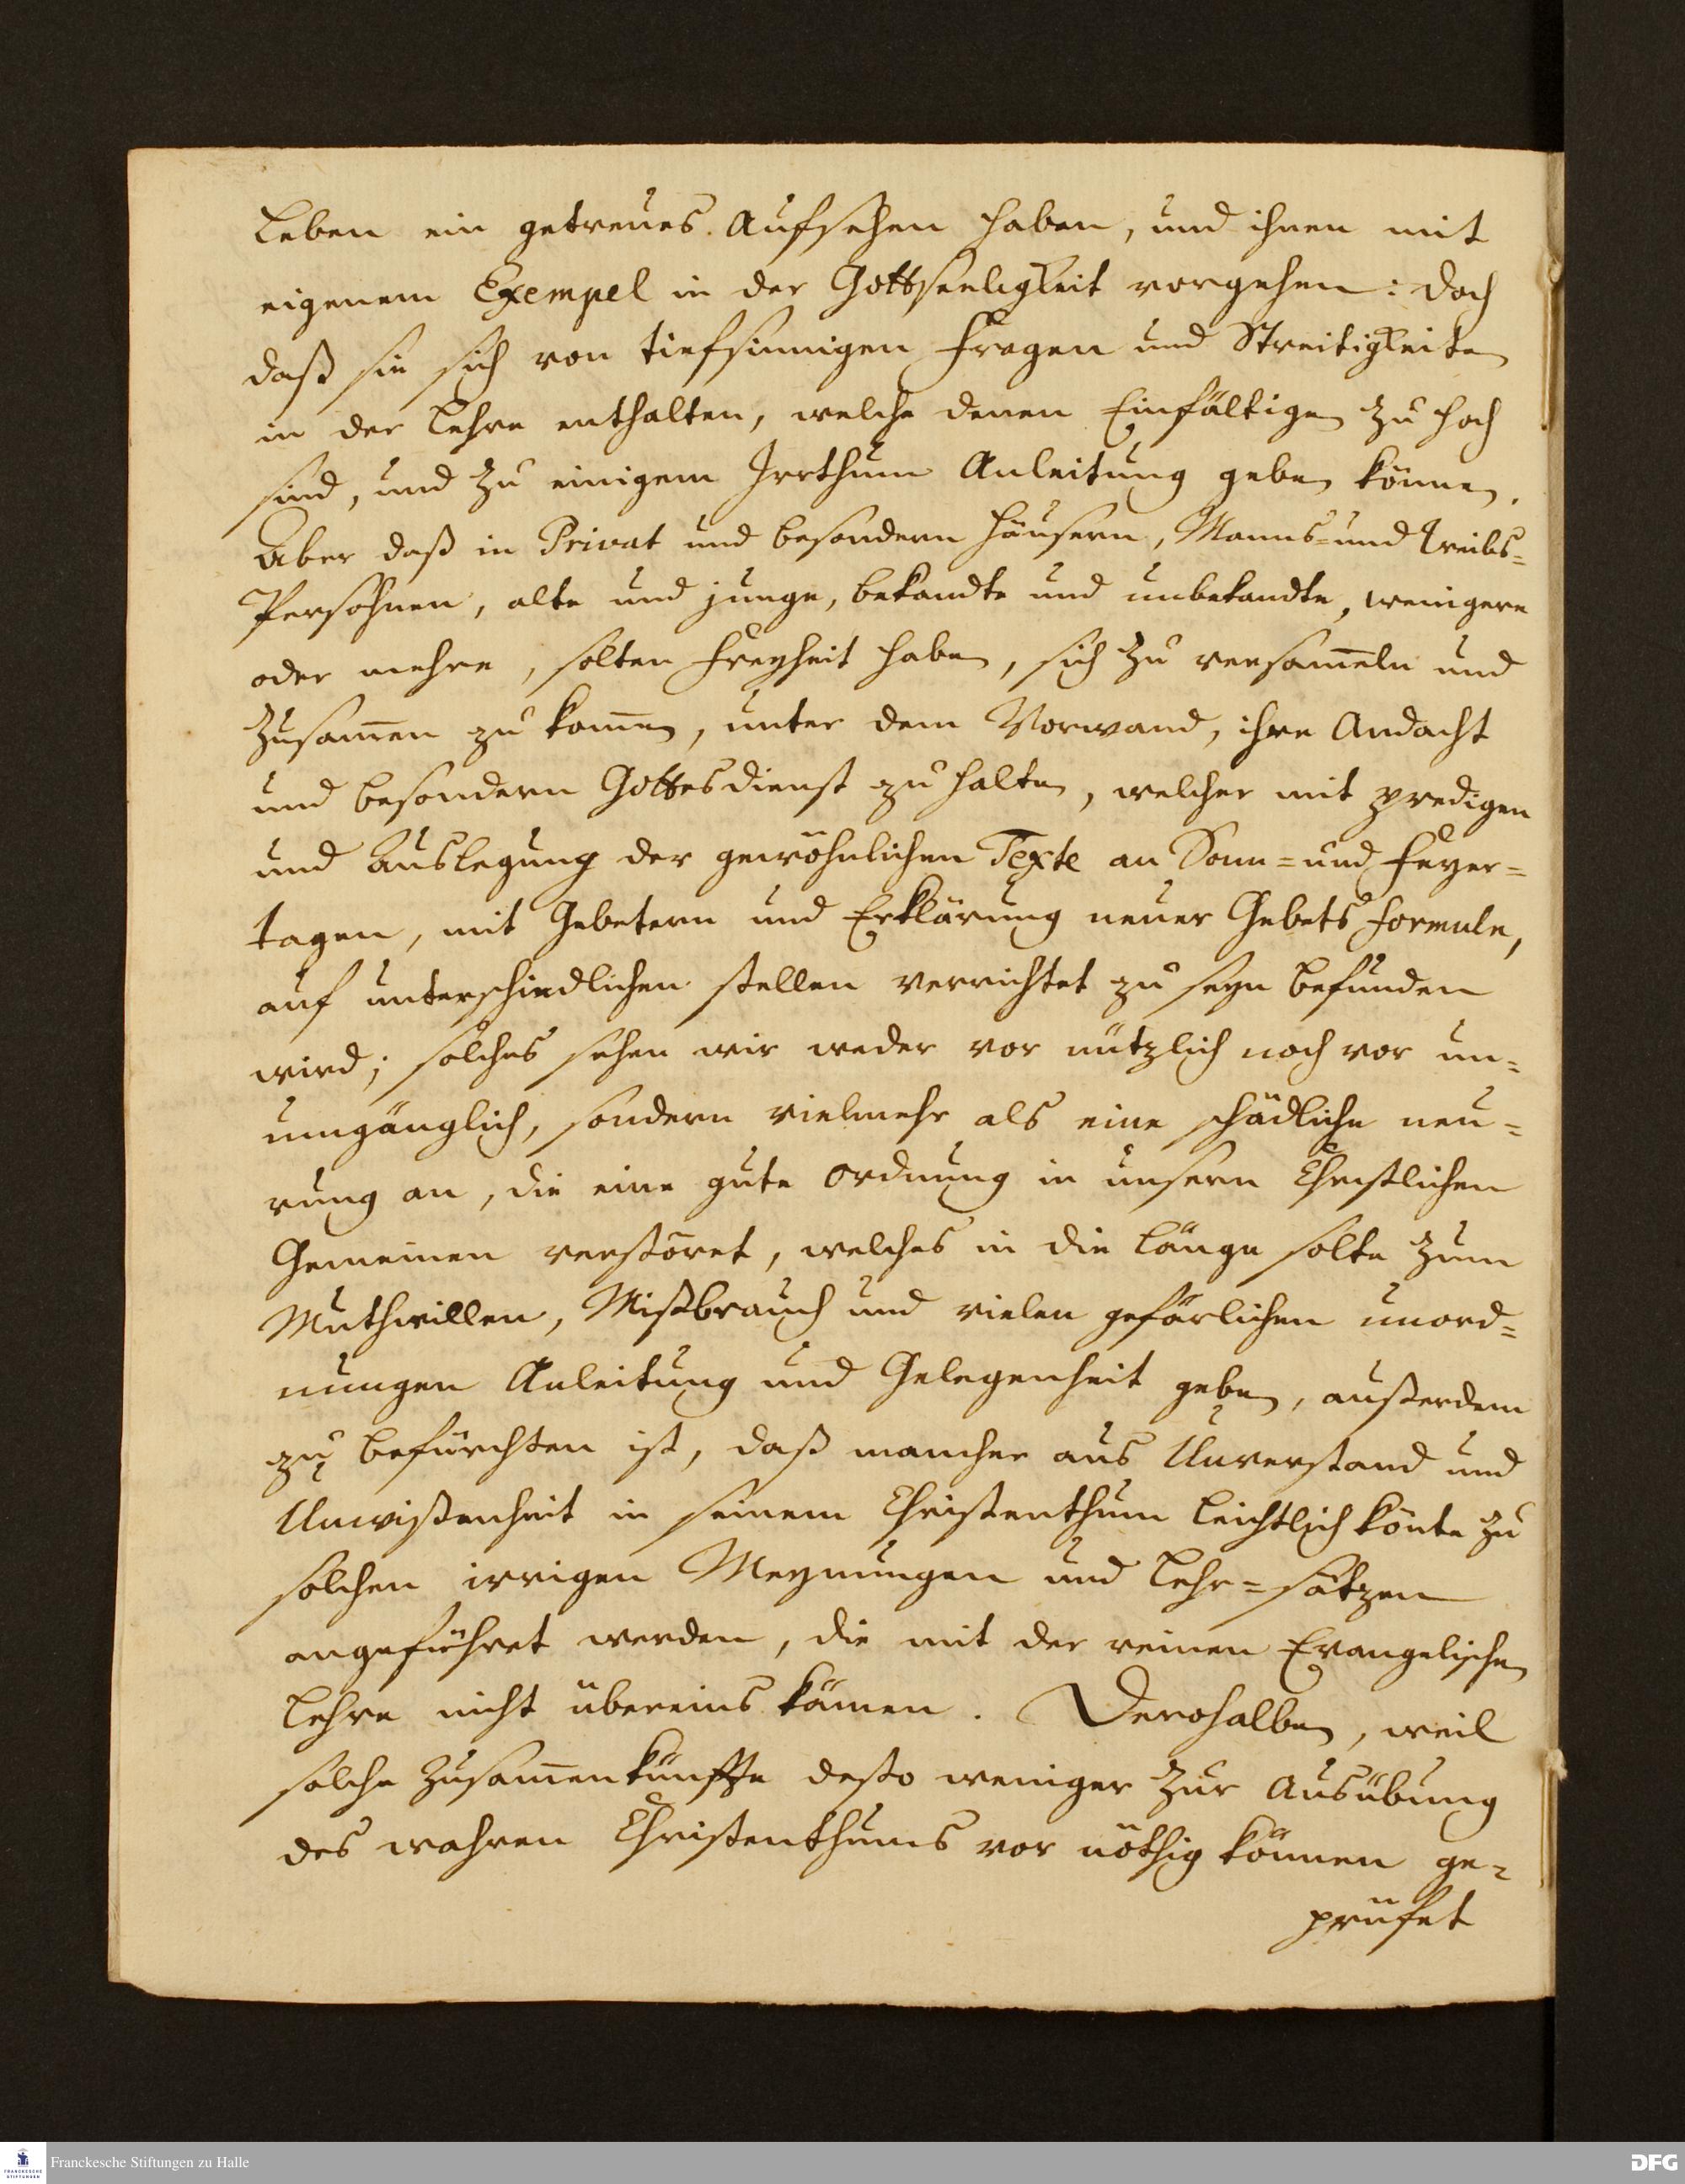 Leben ein getreues Aufsehen haben, und ihnen mit
eigenem Exempel in der Gottseeligkeit vorgehen: doch
daß sie sich von tiefsinnigen Fragen und Streitigkeiten
in der Lehre enthalten, welche denen Einfältigen zu hoch
sind, und zu einigem Irrthum Anleitung geben können.
Aber daß in Privat und besondern Häusern, Manns- und Weibs-
Persohnen, alte und junge, bekandte und unbekandte, wenigere
oder mehre, solten Freyheit haben, sich zu versam̄eln und
zusam̄en zu kom̄en, unter dem Vorwand, ihre Andacht
und besondern Gottesdienst zu halten, welcher mit predigen
und Auslegung der gewöhnlichen Texte an Sonn- und Feyer-
tagen, mit Gebetern und Erklärung neuer Gebets formuln,
auf unterschiedlichen stellen verrichtet zu seyn befunden
wird; solches sehen wir weder vor nützlich noch vor un-
umgänglich, sondern vielmehr als eine schädliche neu-
rung an, die eine gute Ordnung in unsern Christlichen
Gemeinen verstöret, welches in die Länge solte zum
Muthwillen, Mißbrauch und vielen gefärlichen unord-
nungen Anleitung und Gelegenheit geben, außerdem
zu befürchten ist, daß mancher aus Unverstand und
Unwißenheit in seinem Christenthum leichtlich könte zu
solchen irrigen Meynungen und Lehr-sätzen
angeführet werden, die mit der reinen Evangelischen
Lehre nicht übereins kämen. Derohalben, weil
solche Zusam̄enkünffte desto weniger zur Ausübung
des wahren Christenthums vor nöthig können ge-
prüfet
Franckesche Stiftungen zu Halle
FRANCKESCHE STIFTUNGEN
DFG